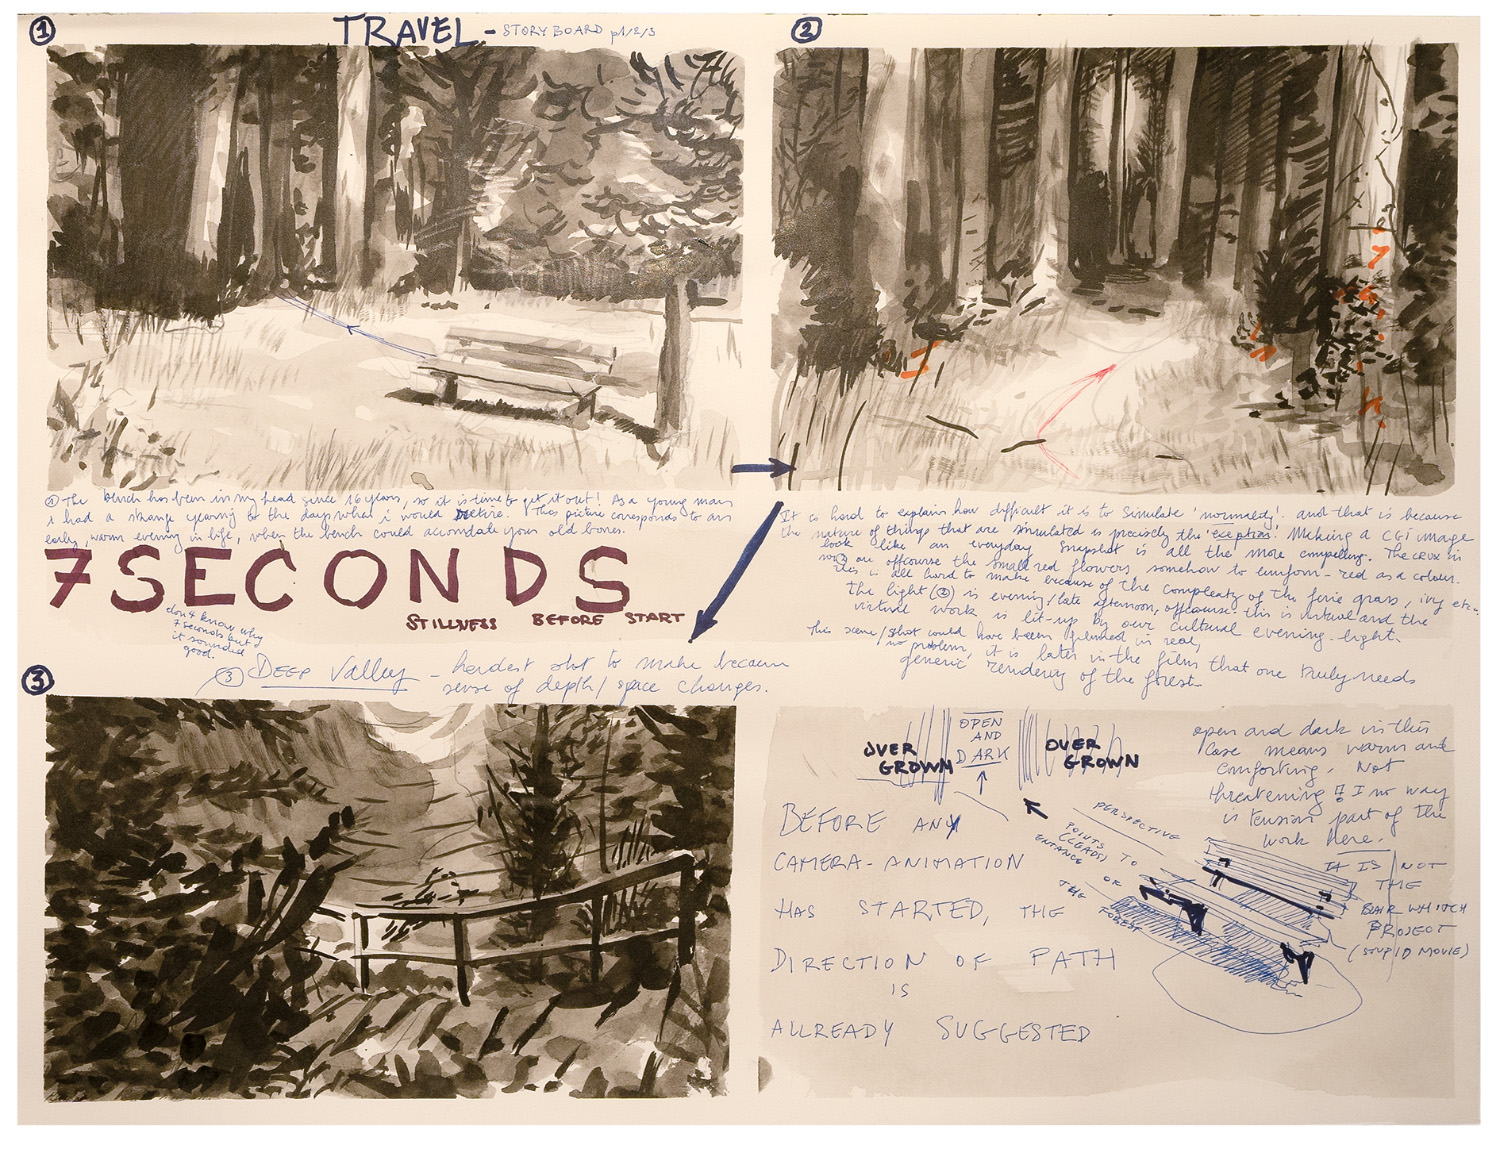 1
TRAVEL - STORYBOARD p1/2/3
2
① The bench has been in my head since 16 years, so it is time to get it out! As a young man
i had a strange yearning to the days when i would retire. This picture corresponds to an
early, warm evening in life, when the bench could accomdate your old bones.
7 SECONDS
STILLNESS BEFORE START
don't know why
7 seconds but
it sounded
good.
It is hard to explain how difficult it is to simulate 'normality'. and that is because
the nature of things that are simulated is precisely the 'exeption'! Making a CGI image
look like an everyday snapshot is all the more compelling. The crux in
are offcourse the small red flowers somehow to - red as a colour.
this is all hard to make because of the complexity of the fine grass, ivy etc.
the light (2) is evening/late afternoon, offcourse this is virtual and the
virtual work is lit-up by our cultural evening-light.
This scene/shot could have been filmed in real,
no problem, it is later in the film that one truly needs
generic rendering of the forest
3
③ DEEP Valley - hardest shot to make because
sense of depth/space changes.
OVER
GROWN
OPEN
AND
DARK
OVER
GROWN
open and dark in this
case means warm and
comforting. Not
threatening !! I no way
is tension part of the
work here.
IT IS NOT
THE
BLAIR WHITCH
PROJECT
(STUPID MOVIE)
PERSPECTIVE
POINTS TO
(LEADS)
ENTRANCE OF
THE FOREST
BEFORE ANY
CAMERA-ANIMATION
HAS STARTED, THE
DIRECTION OF PATH
IS
ALLREADY SUGGESTED